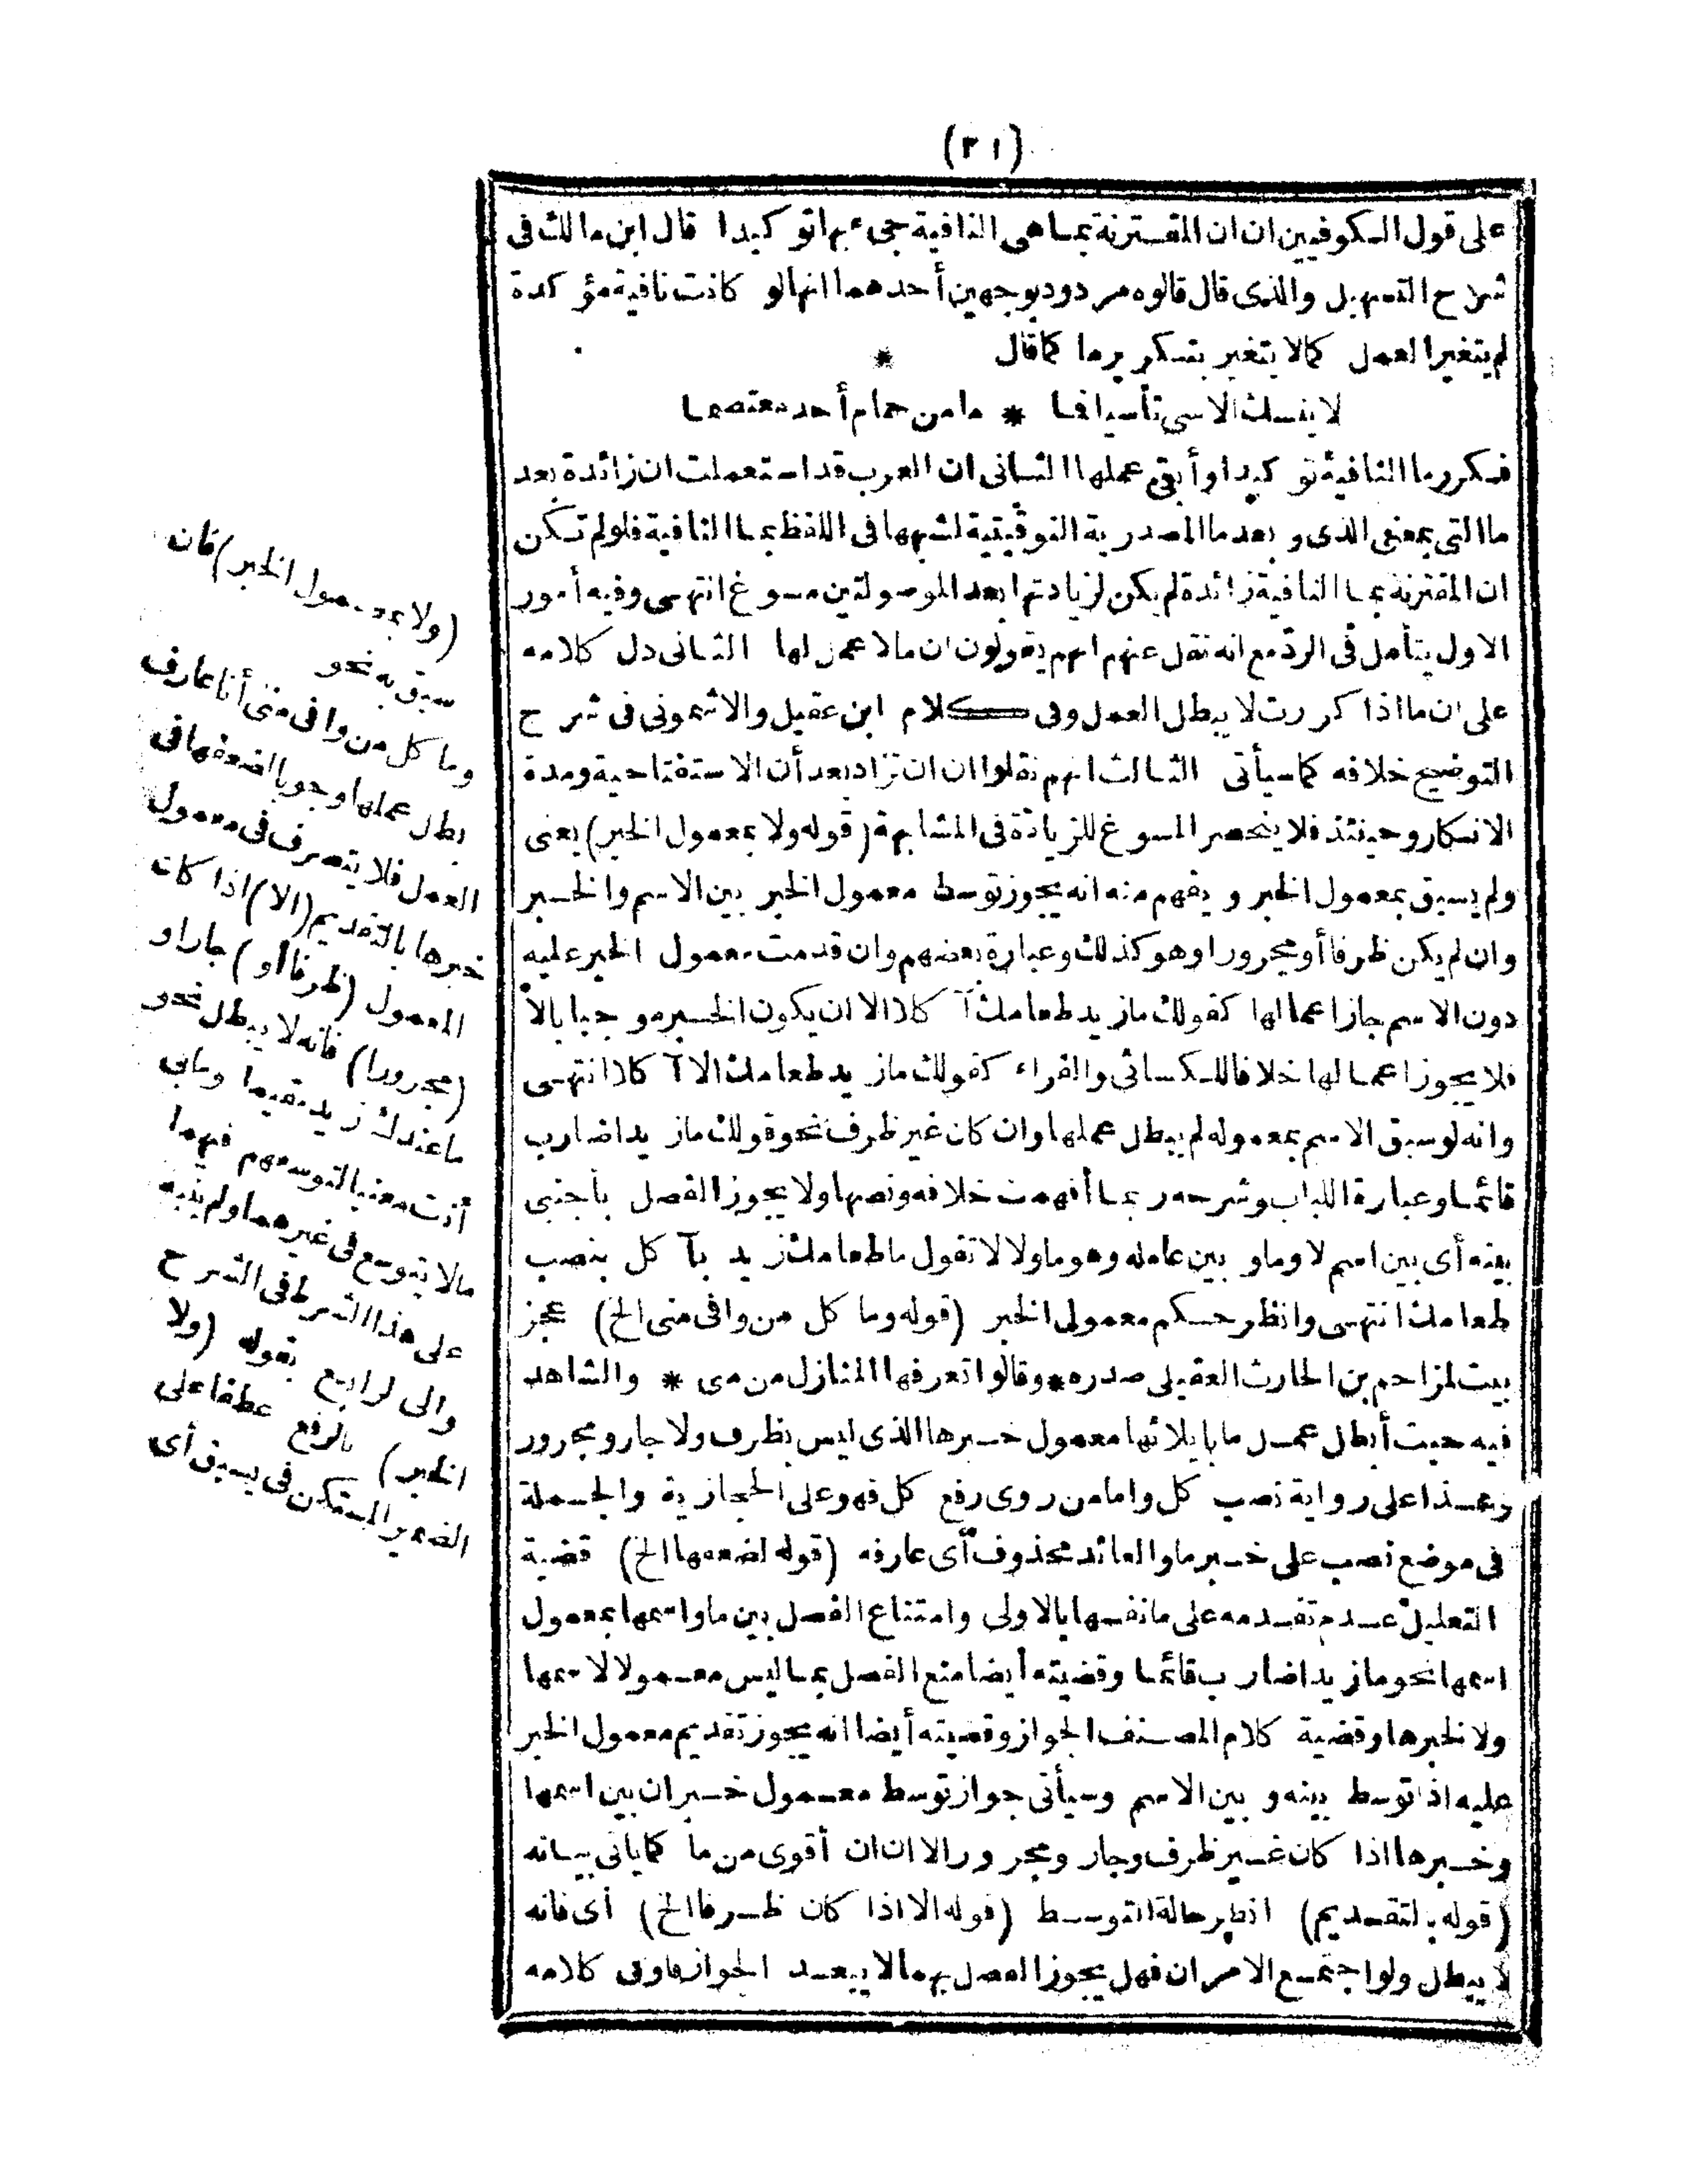 (٣١)
على قول الكوفيين ان ان المقترنة بما هى النافية جىء بها توكيدا قال ابن مالك فى
شرح التسهيل والذى قال قالوه مردود بوجهين أحدهما انها لو كانت نافية مؤكدة
لم يتغير العمل كما لا يتغير بتكرير ما كما قال *
لا ينسك الاسى تأسيا فما * ما من حمام أحد معتصما
فكرر ما النافية توكيدا وأبقى عملها الثانى ان العرب قد استعملت ان زائدة بعد
ما التى بمعنى الذى وبعد ما المصدرية التوقيتية لشبهها فى اللفظ بما النافية فلو لم تكن
ان المقترنة بما النافية زائدة لم يكن لزيادتها بعد الموصولتين مسوغ انتهى وفيه أمور
الاول يتأمل فى الرد مع انه نقل عنهم انهم يقولون ان ما لا عمل لها الثانى دل كلامه
على ان ما اذا كررت لا يبطل العمل وفى كلام ابن عقيل والاشمونى فى شرح
التوضيح خلافه كما سيأتى الثالث انهم نقلوا ان ان تزاد بعد أن الاستفتاحية ومدة
الانكار وحينئذ فلا ينحصر المسوغ للزيادة فى المشابهة (قوله ولا بمعمول الخبر) يعنى
ولم يسبق بمعمول الخبر ويفهم منه انه يجوز توسط معمول الخبر بين الاسم والخبر
وان لم يكن ظرفا أو مجرورا وهو كذلك وعبارة بعضهم وان قدمت معمول الخبر عليه
دون الاسم جاز اعمالها كقولك ما زيد طعامك آكلا الا ان يكون الخبر موجبا بالا
فلا يجوز اعمالها خلافا للكسائى والفراء كقولك ما زيد طعامك الا آكلا انتهى
وانه لو سبق الاسم بمعموله لم يبطل عملها وان كان غير ظرف نحو قولك ما زيدا ضارب
قائما وعبارة اللباب وشرحه ربما أفهمت خلافه ونصها ولا يجوز الفصل بأجنبى
بينه أى بين اسم لا وما وبين عامله وهو ما ولا لا تقول ما طعامك زيد بآكل بنصب
طعامك انتهى وانظر حكم معمولى الخبر (قوله وما كل من وافى منى الخ) عجز
بيت لمزاحم بن الحارث العقيلى صدره * وقالوا تعرفها المنازل من منى * والشاهد
فيه حيث أبطل عمل ما بايلائها معمول خبرها الذى ليس بظرف ولا جار ومجرور
وهذا على رواية نصب كل واما من روى رفع كل فهو على الحجازية والجملة
فى موضع نصب على خبر ما والعائد محذوف أى عارفه (قوله لضعفها الخ) قضية
التعليل عدم تقدمه على ما نفسها بالاولى وامتناع الفصل بين ما واسمها بمعمول
اسمها نحو ما زيدا ضارب قائما وقضيته أيضا منع الفصل بما ليس معمولا لاسمها
ولا لخبرها وقضية كلام المصنف الجواز وقضيته أيضا انه يجوز تقديم معمول الخبر
عليه اذا توسط بينه وبين الاسم وسيأتى جواز توسط معمول خبر ان بين اسمها
وخبرها اذا كان غير ظرف وجار ومجرور الا ان ان أقوى من ما كما يأتى بيانه
(قوله بالتقديم) انظر حالة التوسط (قوله الا اذا كان ظرفا الخ) أى فانه
لا يبطل ولو اجتمع الامران فهل يجوز الفصل بهما لا يبعد الجواز فاو فى كلامه
(ولا بمعمول الخبر) فان
سبق به نحو
وما كل من وافى منى أنا عارف
بطل عملها وجوبا لضعفها فى
العمل فلا يتصرف فى معمول
خبرها بالتقديم (الا) اذا كان
المعمول (ظرفا أو) جارا و
(مجرورا) فانه لا يبطل نحو
ما عندك زيد مقيما وما بى
أنت معنيا لتوسعهم فيهما
ما لا يتوسع فى غيرهما ولم ينبه
على هذا الشرط فى الشرح
والى الرابع بقوله (ولا
الخبر) بالرفع عطفا على
الضمير المستكن فى يسبق أى